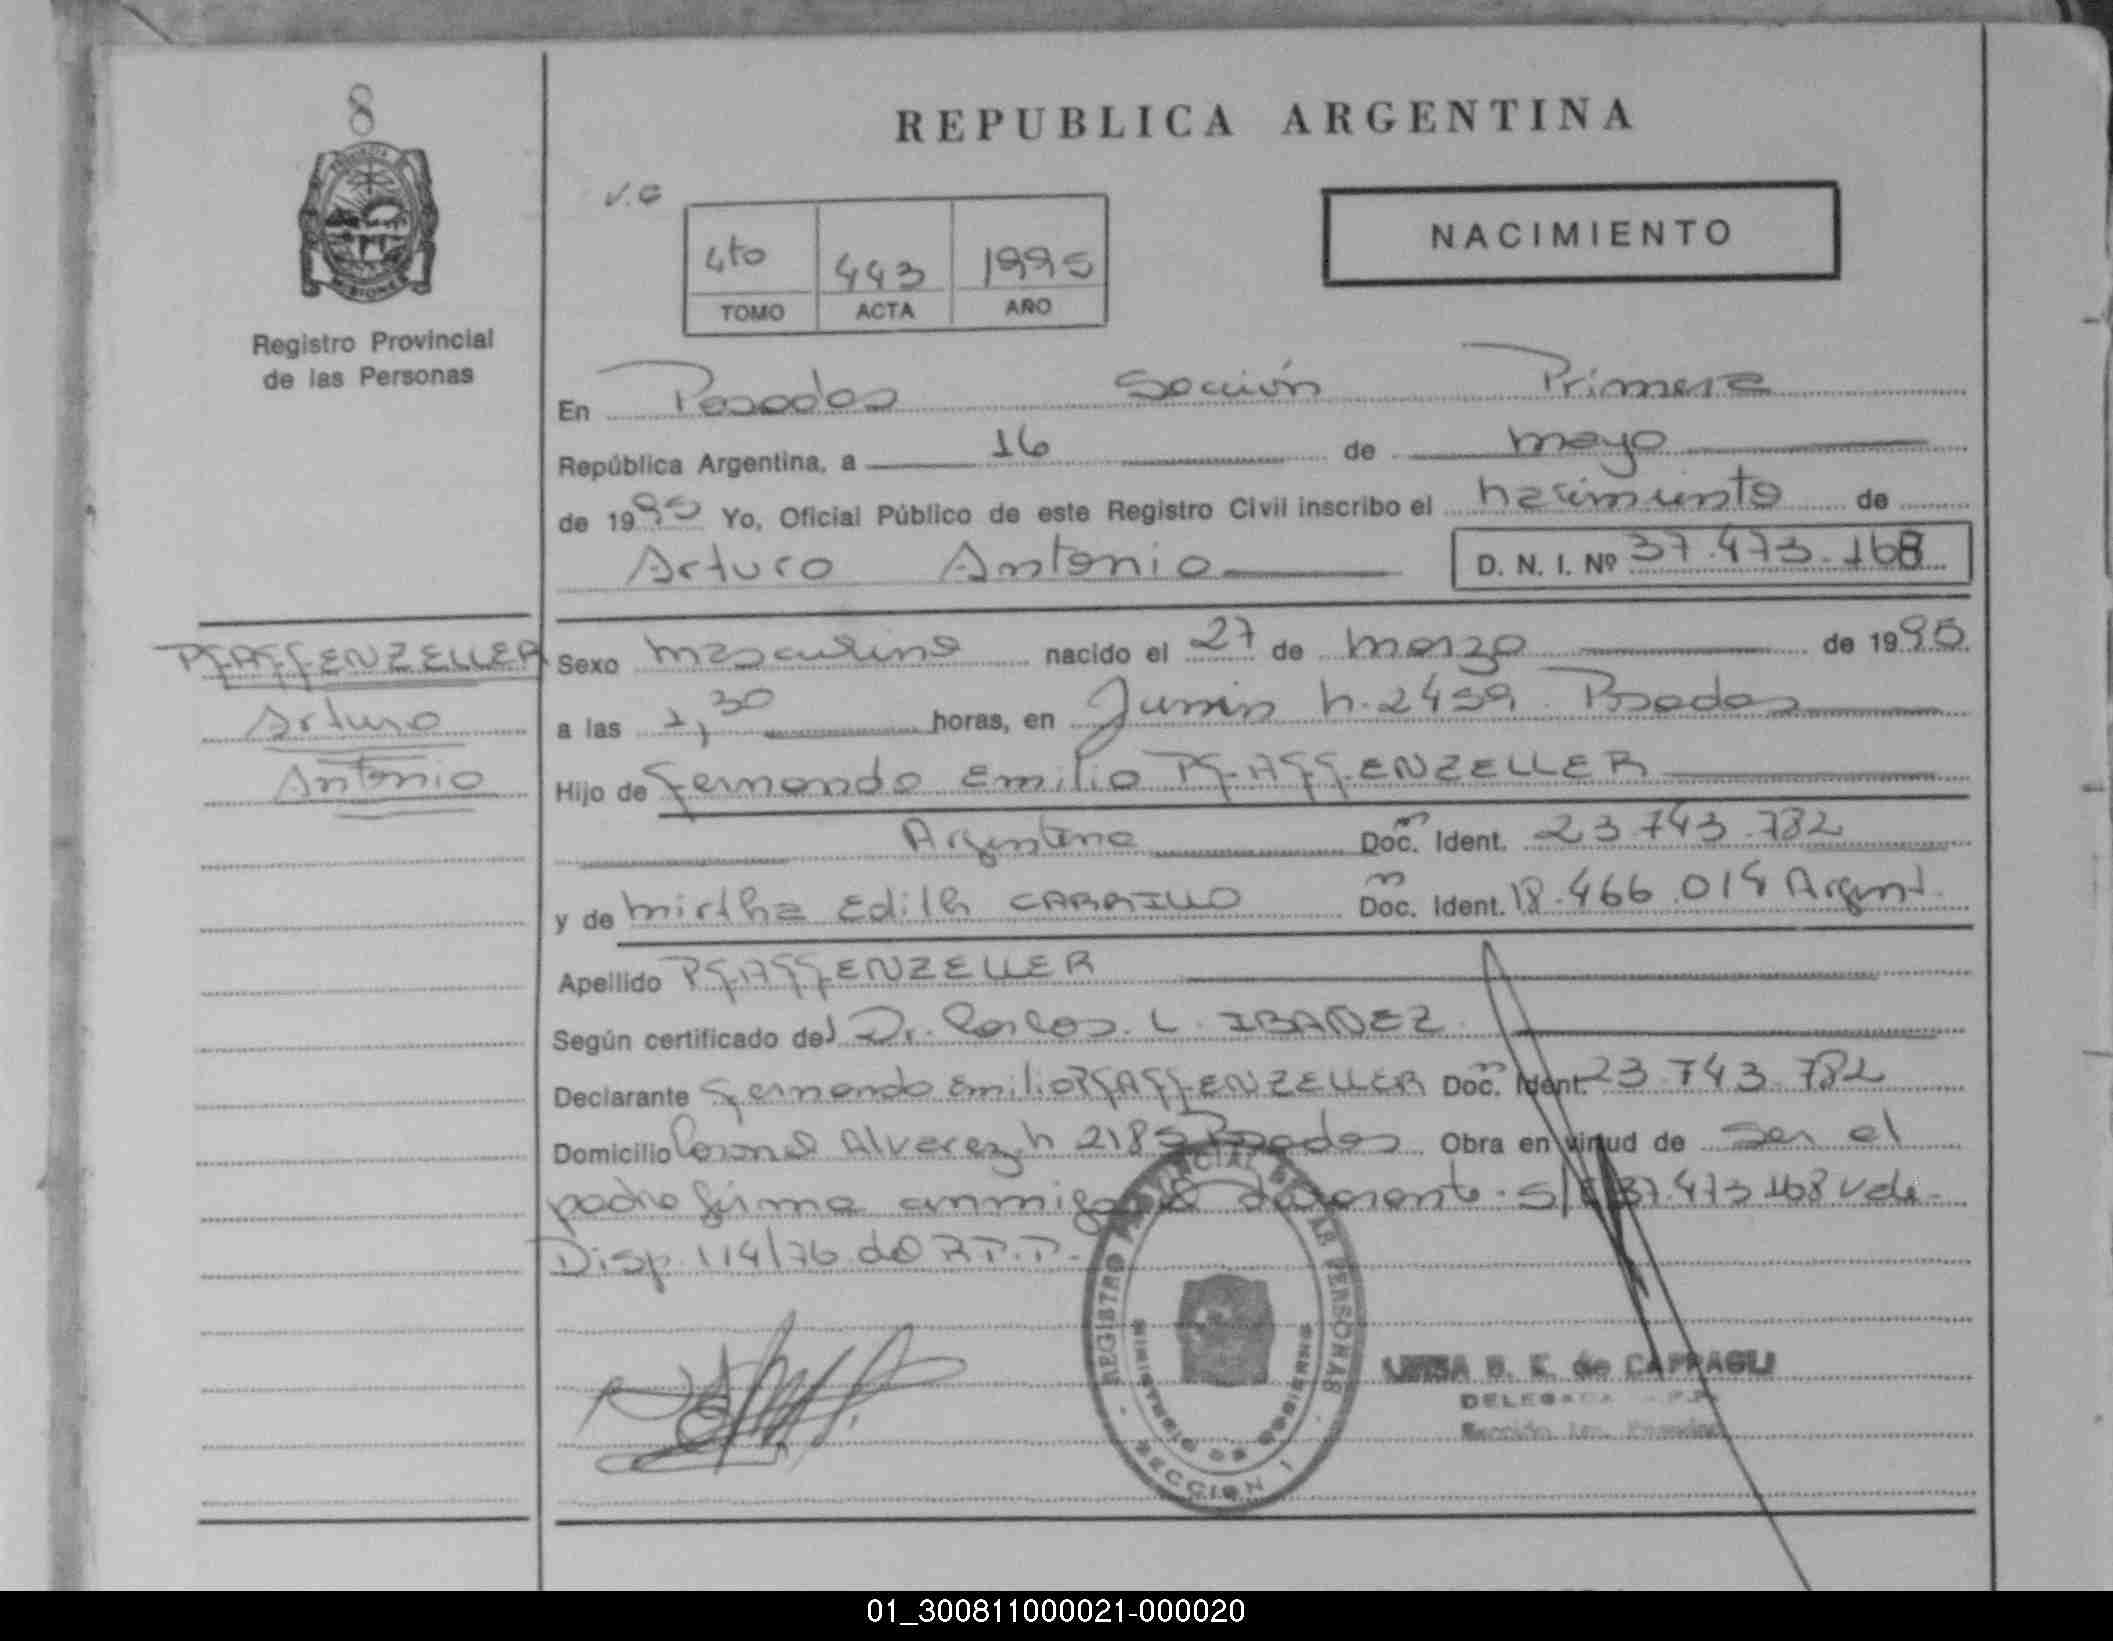 8
REPUBLICA ARGENTINA
V.C
NACIMIENTO
4to 443 1995
TOMO ACTA AÑO
Registro Provincial
de las Personas
En Posadas Sección Primera
República Argentina, a 16 de mayo
de 1995 Yo, Oficial Público de este Registro Civil inscribo el nacimiento de
Arturo Antonio D. N. I. Nº 37.473.168
PFAFFENZELLER
Arturo
Antonio
Sexo masculino nacido el 27 de marzo de 1995
a las 1,30 horas, en Junin n. 2459 Posadas
Hijo de Fernando Emilio PFAFFENZELLER
Argentina Doc. Ident. 23.743.782
y de Mirtha Edith CARRILLO Doc. Ident. 18.466.014 Argent.
Apellido PFAFFENZELLER
Según certificado del Dr. Carlos L. IBAÑEZ
Declarante Fernando Emilio PFAFFENZELLER Doc. Ident. 23.743.782
Domicilio Coronel Alvarez n 2185 Posadas Obra en virtud de ser el
padre firma conmigo el declarante. S/ 37.473.168 vale.
Disp. 114/76 del R.P.P.
REGISTRO PROVINCIAL DE LAS PERSONAS
MINISTERIO DE GOBIERNO
SECCION 1
LUISA B. E. de CAPRAGLI
DELEGADA
Sección
01_300811000021-000020